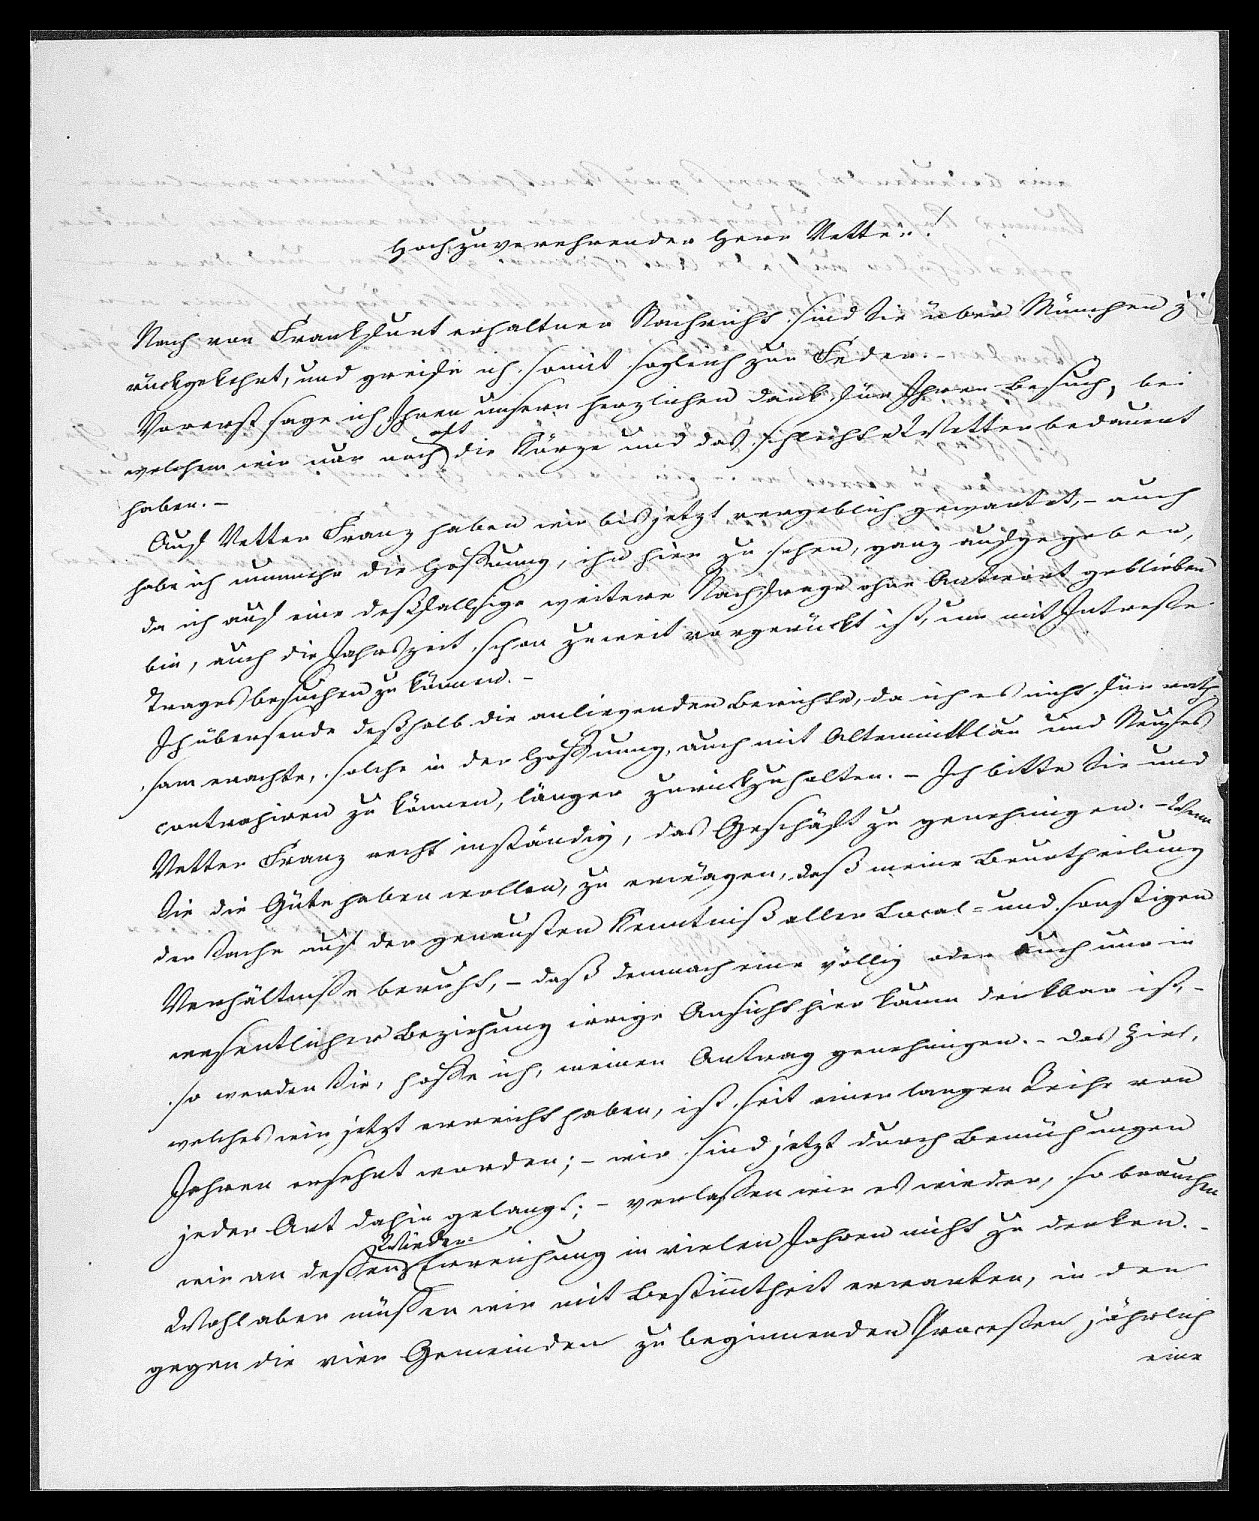 Hochzuverehrender Herr Vetter!
Nach von Frankfurt erhaltner Nachricht sind Sie über München zu
rückgekehrt, und greife ich somit sogleich zur Feder. –
Vorerst sage ich Ihnen unsern herzlichen Dank für Ihren Besuch, bei
welchem wir nur noch oft die Kürze und das schlechte Wetter bedauert
haben. –
Auf Vetter Franz haben wir bis jetzt vergeblich gewartet, – auch
habe ich nunmehr die Hoffnung, ihn hier zu sehen, ganz aufgegeben,
da ich auf eine deßfallsige weitere Nachfrage ohne Antwort geblieben
bin, auch die Jahrszeit schon zuweit vorgerückt ist, um mit Intresse
Trages besuchen zu können. –
Ich übersende deßhalb die anliegenden Berichte, da ich es nicht für rath-
sam erachte, solche in der Hoffnung, auch mit Altenmittlau und Neuses
contrahiren zu können, länger zurückzuhalten. – Ich bitte Sie und
Vetter Franz recht inständig, das Geschäft zu genehmigen. – Wenn
Sie die Güte haben wollen, zu erwägen, daß meine Beurtheilung
der Sache auf der genausten Kenntniß aller Local- und sonstigen
Verhältniße beruht, – daß demnach eine völlig oder auch nur in
wesentlicher Beziehung irrige Ansicht hier kaum denkbar ist, –
so werden Sie, hoffe ich, meinen Antrag genehmigen. – Das Ziel,
welches wir jetzt erreicht haben, ist seit einer langen Reihe von
Jahren ersehnt worden; – wir sind jetzt durch Bemühungen
jeder Art dahin gelangt; – verlaßen wir es wieder, so brauchen
wir an deßen Wieder- Erreichung in vielen Jahren nicht zu denken. –
Wohl aber müßen wir mit Bestimtheit erwarten, in den
gegen die vier Gemeinden zu beginnenden Proceßen jährlich
eine